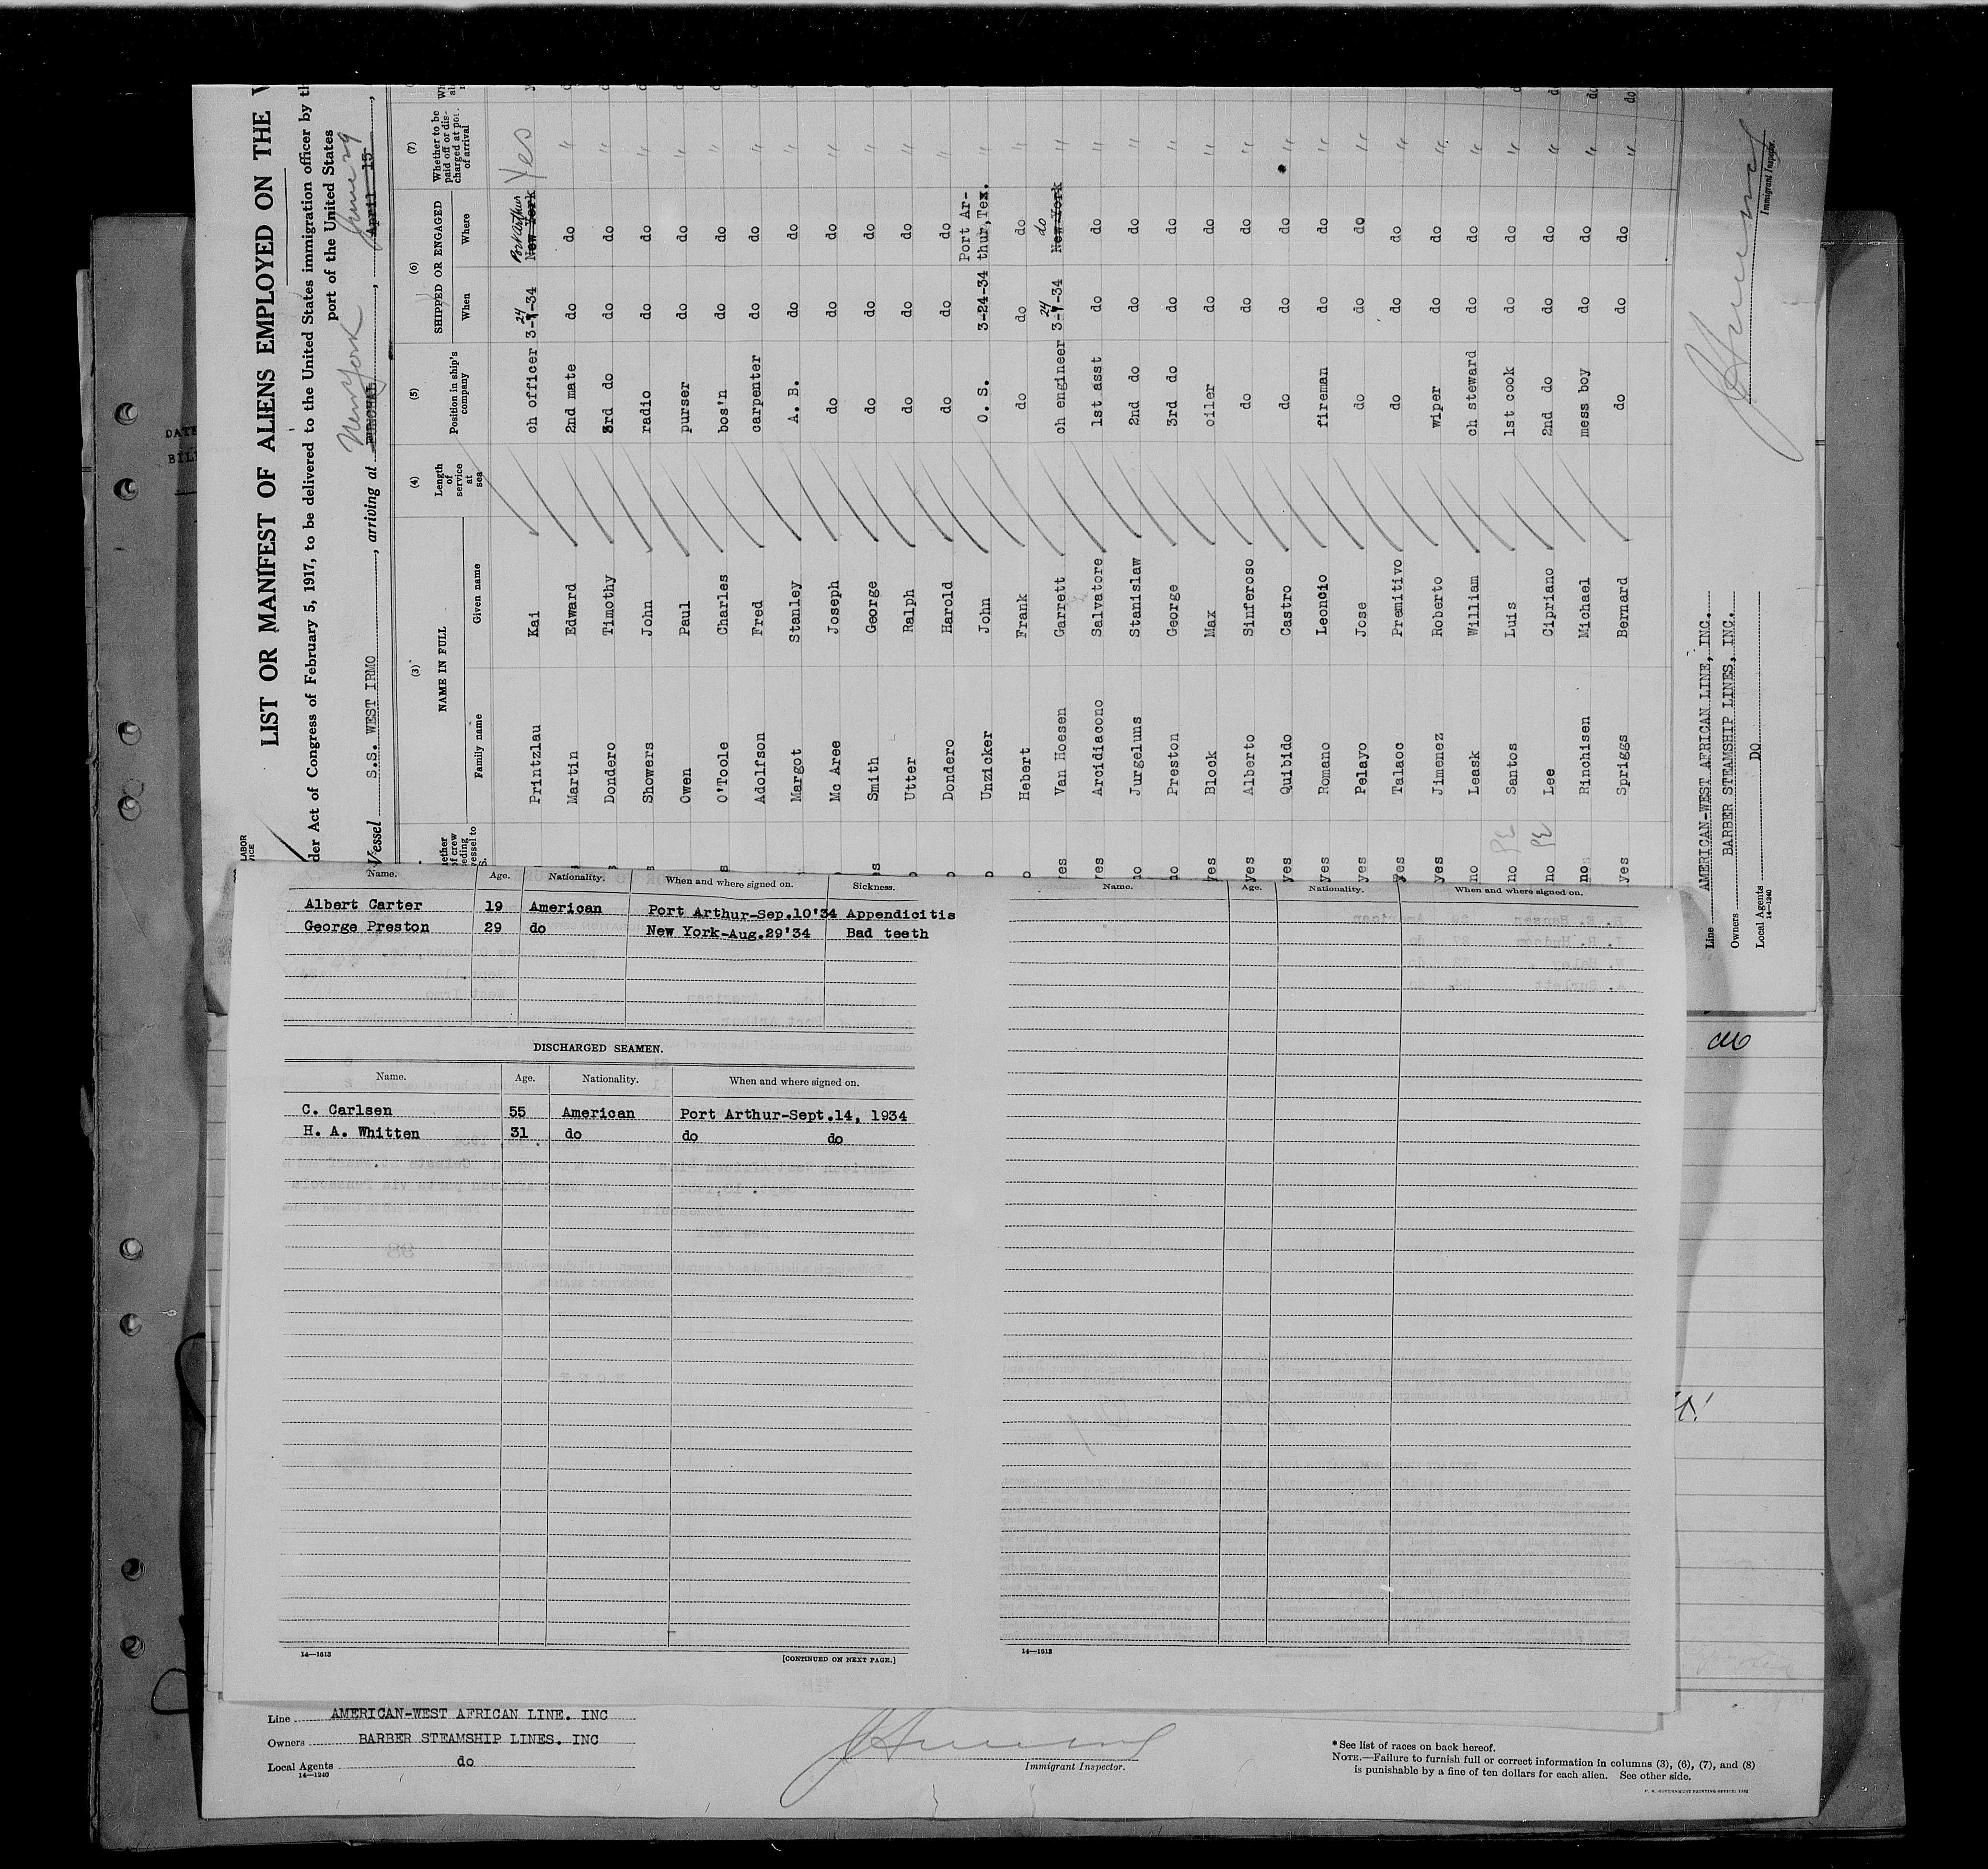 LIST OR MANIFEST OF ALIENS EMPLOYED ON THE
der Act of Congress of February 5, 1917, to be delivered to the United States immigration officer by th
port of the United States
Vessel S.S. WEST IRMO, arriving at FUNCHAL New York, April 15 June 29,
(3) (4) (5) (6) (7)
NAME IN FULL
Family name Given name
Length of service at sea
Position in ship's company
SHIPPED OR ENGAGED
When Where
Whether to be paid off or discharged at port of arrival
Printzlau Kai ch officer 3-1-34 24 New York Port Arthur Yes
Martin Edward 2nd mate do do "
Dondero Timothy 3rd do do do "
Showers John radio do do "
Owen Paul purser do do "
O'Toole Charles bos'n do do "
Adolfson Fred carpenter do do "
Margot Stanley A. B. do do "
Mc Aree Joseph do do do "
Smith George do do do "
Utter Ralph do do do "
Dondero Harold do do do "
Unzicker John O. S. 3-24-34 Port Ar-thur,Tex. "
Hebert Frank do do do "
yes Van Hoesen Garrett ch engineer 3-1-34 24 New York do "
yes Arcidiacono Salvatore 1st asst do do "
no Jurgeluns Stanislaw 2nd do do do "
no Preston George 3rd do do do "
yes Block Max oiler do do "
yes Alberto Sinferoso do do do "
yes Quibido Castro do do do "
yes Romano Leoncio fireman do do "
yes Pelayo Jose do do do "
Yes Talaoc Premitivo do do do "
yes Jimenez Roberto wiper do do "
no Leask William ch steward do do "
no Santos Luis 1st cook do do "
no Lee Cipriano 2nd do do do "
no Rinchisen Michael mess boy do do "
yes Spriggs Bernard do do do "
Line AMERICAN-WEST AFRICAN LINE, INC.
Owners BARBER STEAMSHIP LINES, INC.
Local Agents DO
14—1240
Immigrant Inspector.
Name. Age. Nationality. When and where signed on. Sickness.
Albert Carter 19 American Port Arthur-Sep.10'34 Appendicitis
George Preston 29 do New York-Aug.29'34 Bad teeth
DISCHARGED SEAMEN.
Name. Age. Nationality. When and where signed on.
C. Carlsen 55 American Port Arthur-Sept.14, 1934
H. A. Whitten 31 do do do
14—1613
[CONTINUED ON NEXT PAGE.]
Name. Age. Nationality. When and where signed on.
14—1613
Line AMERICAN-WEST AFRICAN LINE. INC
Owners BARBER STEAMSHIP LINES. INC
Local Agents do
14—1240
Immigrant Inspector.
*See list of races on back hereof.
NOTE.—Failure to furnish full or correct information in columns (3), (6), (7), and (8)
is punishable by a fine of ten dollars for each alien. See other side.